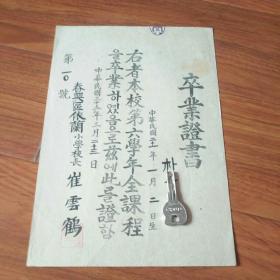 卒業證書
朴
中華民國二十一年一月二日生
右者本校第六學年全課程
을卒業하였음으로茲에此를證함
中華民國三十五年二月二十三日
春興區依蘭小學校長 崔雲鶴
第一〇號